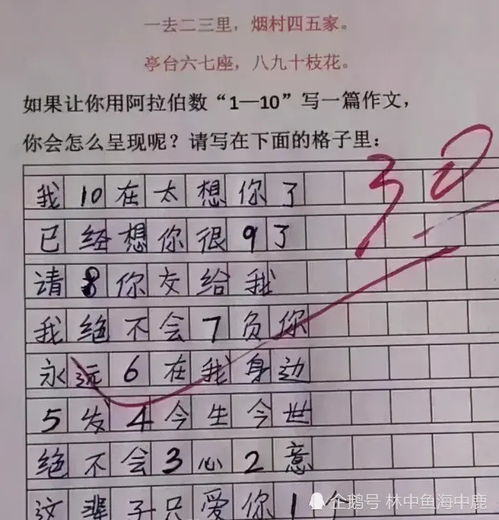 一去二三里，烟村四五家。
亭台六七座，八九十枝花。
如果让你用阿拉伯数“1—10”写一篇作文，
你会怎么呈现呢？请写在下面的格子里：
30
我10在太想你了
已经想你很9了
请8你交给我
我绝不会7负你
永远6在我身边
5发4今生今世
绝不会3心2意
这辈子只爱你1个
企鹅号 林中鱼海中鹿